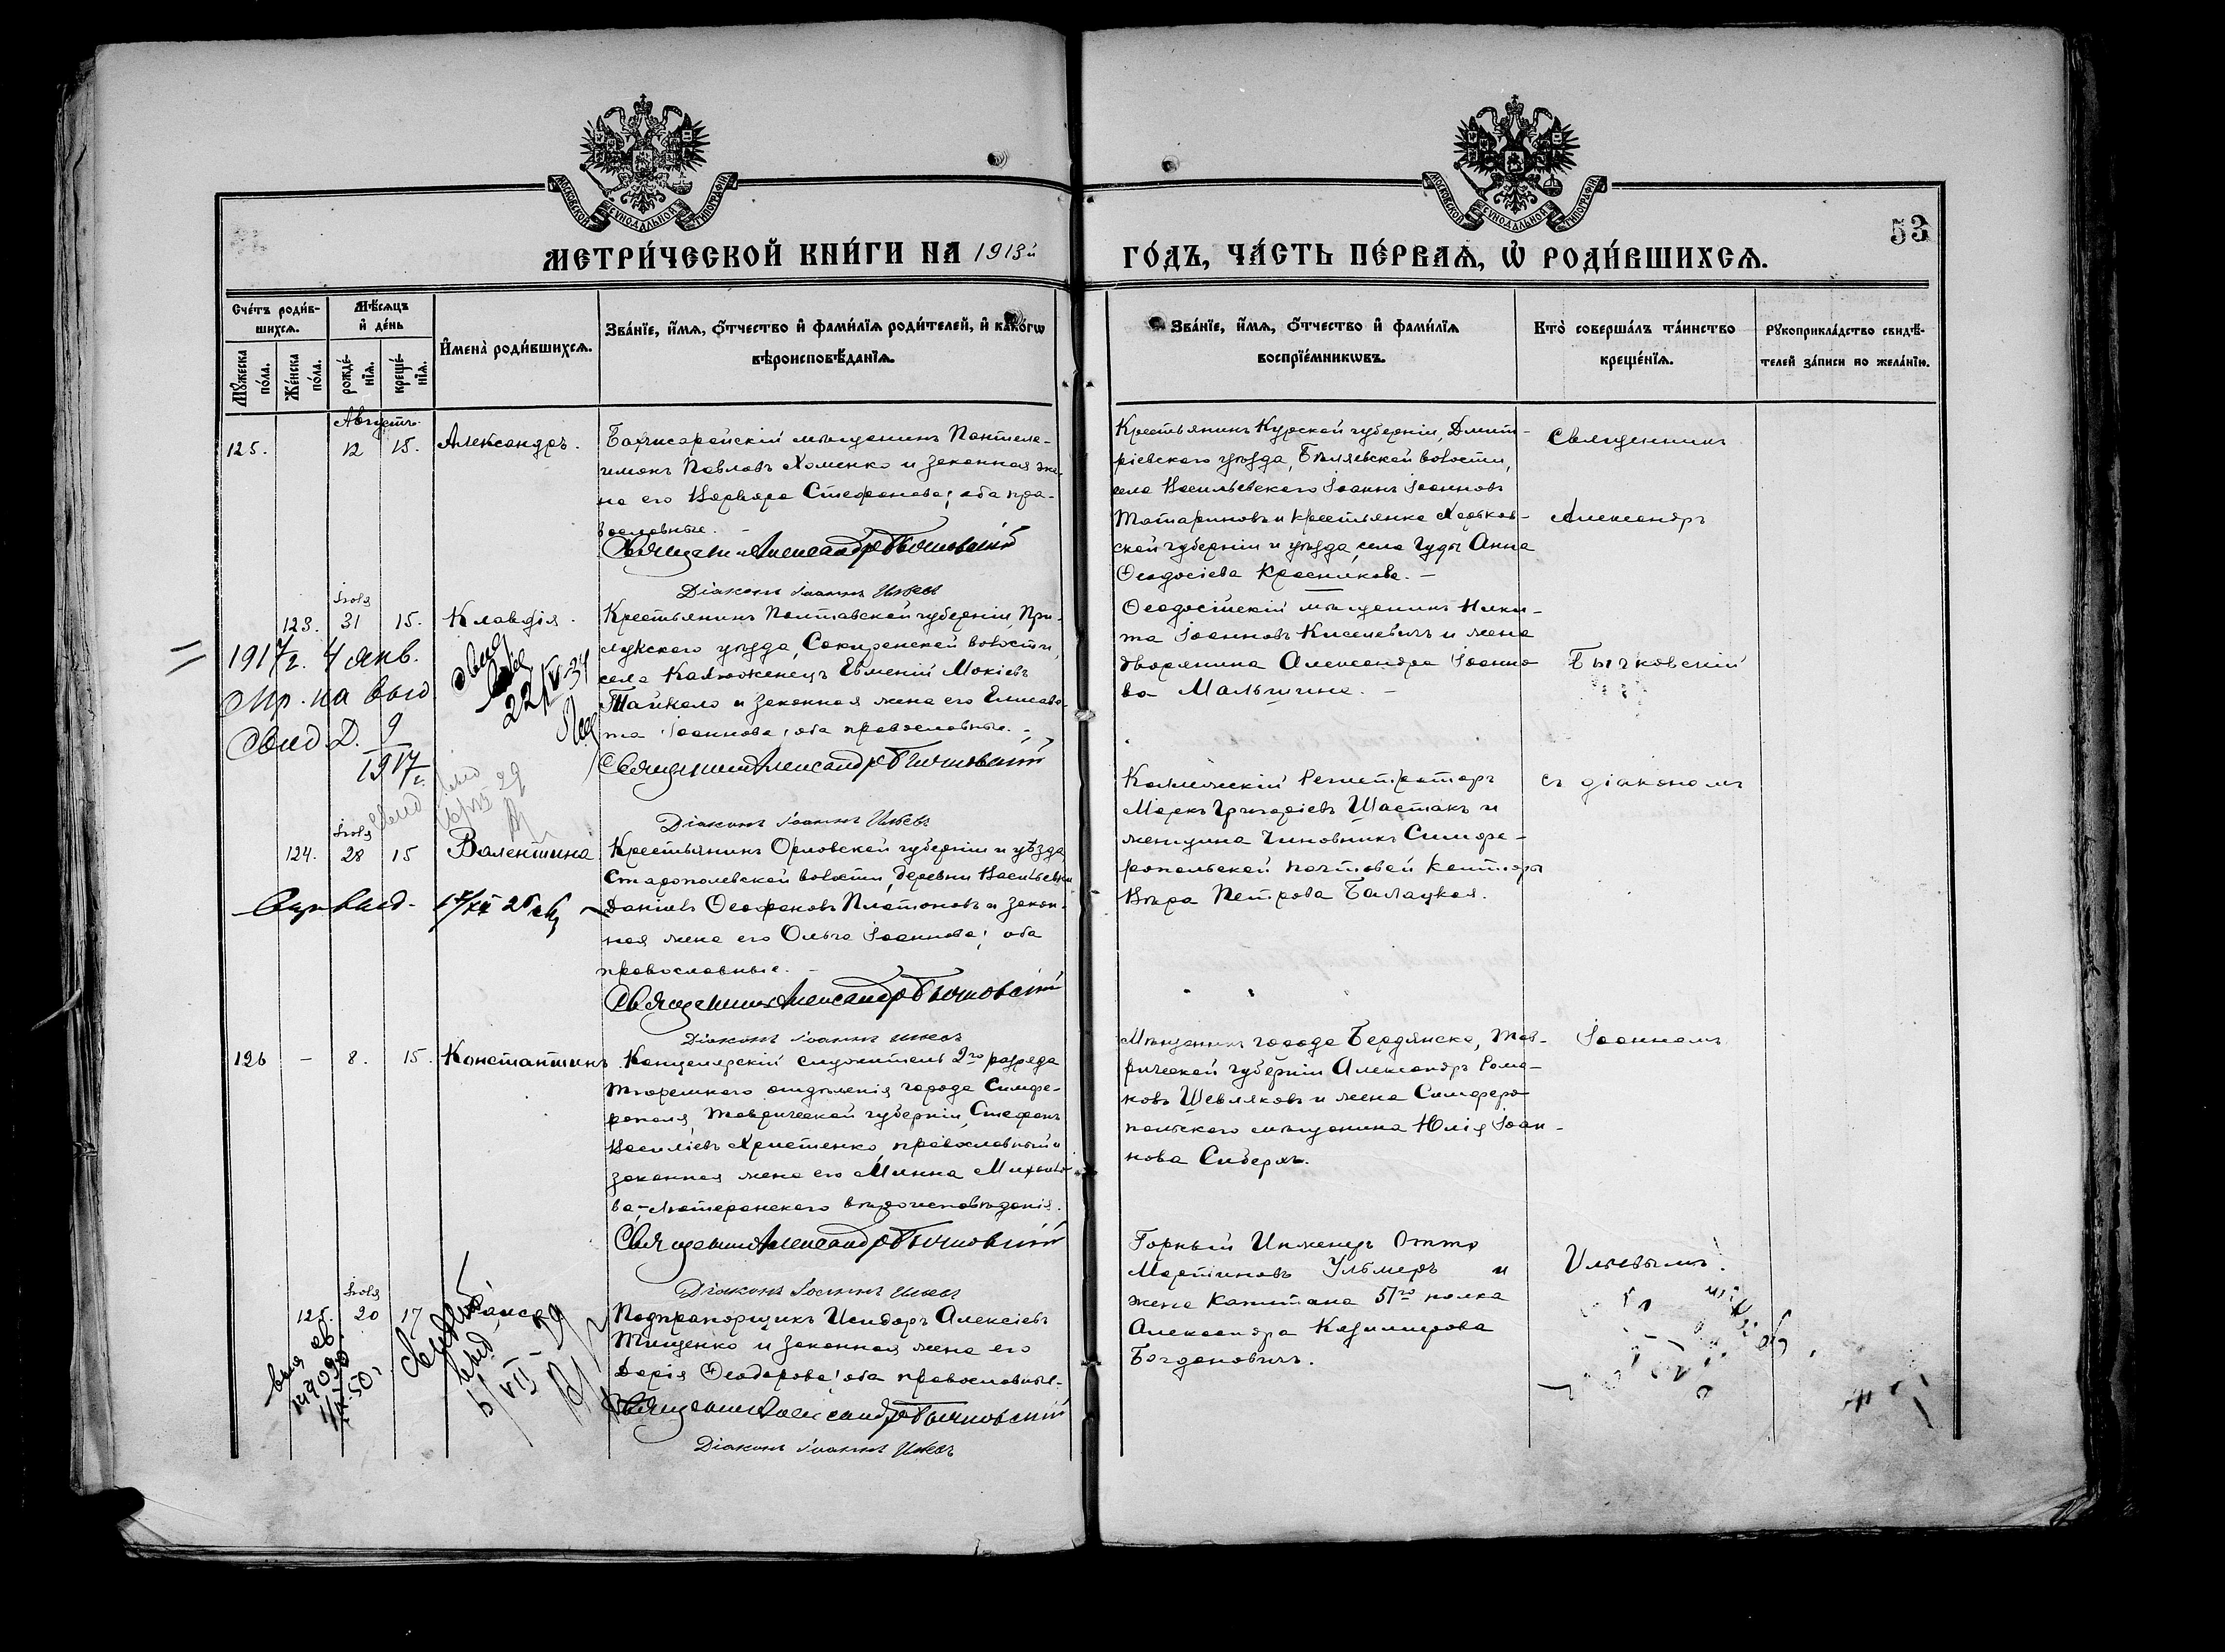 МОСКОВСКОЙ СѴНОДАЛЬНОЙ ТИПОГРАФІИ
МОСКОВСКОЙ СѴНОДАЛЬНОЙ ТИПОГРАФІИ
53
МЕТРИ́ЧЕСКОЙ КНИ́ГИ НА 1913й
ГО́ДЪ, ЧА́СТЬ ПЕ́РВАѦ, Ѡ҆ РОДИ́ВШИХСѦ.
Сче́тъ роди́в-
шихсѧ.
Мѣ́сѧцъ
и҆ де́нь
И҆мена̀ роди́вшихсѧ.
Зва́нїе, и҆́мѧ, ѻ҆́тчество и҆ фами́лїѧ роди́телей, и҆ како́гѡ
вѣроисповѣ́данїѧ.
Мꙋ́жеска по́ла.
Же́нска по́ла.
рожде́-нїѧ.
креще́-нїѧ.
Зва́нїе, и҆́мѧ, ѻ҆́тчество и҆ фами́лїѧ
воспрїе́мникѡвъ.
Кто̀ соверша́лъ та́инство
креще́нїѧ.
Рꙋкоприкла́дство свидѣ́-
телей за́писи по жела́нїю.
Августъ
125. 12 15. Александръ.
Бахчисарайскій мѣщанинъ Пантеле-
имонъ Павловъ Хоменко и законная же-
на его Варвара Стефанова; оба пра-
вославные. –
Священникъ Александръ Бычковскій
Діаконъ Іоаннъ Ильевъ
Крестьянинъ Курской губерніи, Дмит-
ріевскаго уѣзда, Бѣляевской волости,
села Васильевскаго Іоаннъ Іоанновъ
Татариновъ и крестьянка Харьков-
ской губерніи и уѣзда села Гуды Анна
Ѳеодосіева Красникова. –
Священникъ
Александръ
Іюля
123. 31 15. Клавдія.
Крестьянинъ Полтавской губерніи, При-
лукскаго уѣзда, Сокиренской волости,
села Калюженецъ Евменій Мокіевъ
Тайкало и законная жена его Елисаве-
та Іоаннова; оба православные. –
Священникъ Александръ Бычковскій
Діаконъ Іоаннъ Ильевъ
1917 г. 4 янв.
пр. на выд
Свид. Д. 9
1917 г.
22/V-34
Ѳеодосійскій мѣщанинъ Ники-
та Іоанновъ Киселевичъ и жена
дворянина Александра Іоанно-
ва Мальгина. –
Бычковскій
Іюля
124. 28 15 Валентина
Крестьянинъ Орловской губерніи и уѣзда,
Старопольской волости, деревни Васильевки
Даніилъ Ѳеофановъ Платоновъ и закон-
ная жена его Ольга Іоаннова; оба
православные. –
Священникъ Александръ Бычковскій
Діаконъ Іоаннъ Ильевъ
Коллежскій Регистраторъ
Маркъ Григоріевъ Шастакъ и
женщина чиновникъ Симфе-
ропольской почтовой конторы
Вѣра Петрова Балацкая.
съ діакономъ
126 – 8. 15. Константинъ.
Канцелярскій служитель 2го разряда
тюремнаго отдѣленія города Симфе-
рополя, Таврической губерніи, Стефанъ
Василіевъ Христенко, православный и
законная жена его Минна Михайло-
ва, – лютеранскаго вѣроисповѣданія.
Священникъ Александръ Бычковскій
Діаконъ Іоаннъ Ильевъ
Мѣщанинъ города Бердянска, Тав-
рической губерніи Александръ Рома-
новъ Шевляковъ и жена Симферо-
польскаго мѣщанина Юлія Іоан-
нова Сиберъ.
Іоанномъ
Іюля
125. 20 17 Раиса
Подпрапорщикъ Исидоръ Алексіевъ
Тищенко и законная жена его
Дарія Ѳеодорова; оба православные. –
Священникъ Александръ Бычковскій
Діаконъ Іоаннъ Ильевъ
Горный Инженеръ Отто
Мартиновъ Ульмеръ и
жена капитана 51го полка
Александра Казимирова
Богдановичъ.
Ильевымъ.